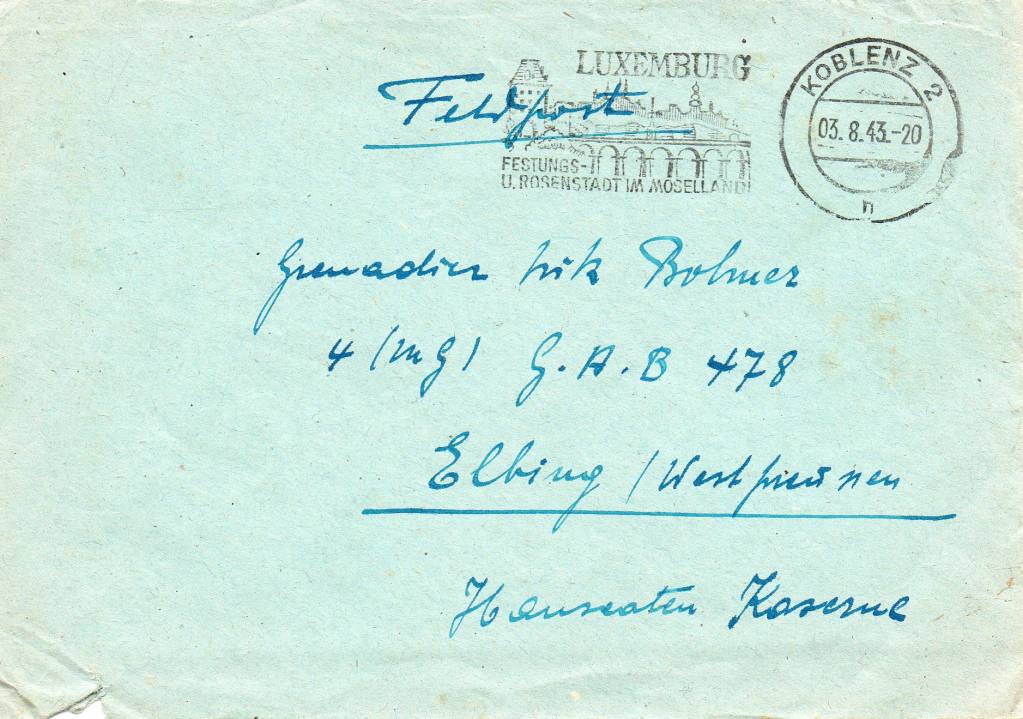 LUXEMBURG
FESTUNGS-
U. ROSENSTADT IM MOSELLAND!
KOBLENZ 2
03.8.43.-20
n
Feldpost
Grenadier Bolmer
4 (MG) G.A.B 478
Elbing /Westpreussen
Hanseaten Kaserne